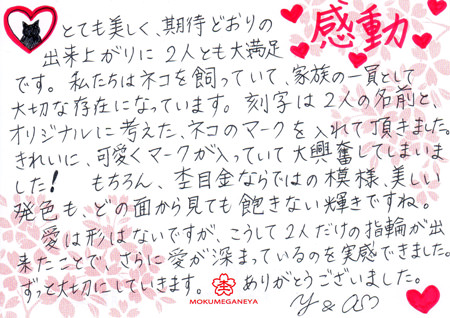 感動
とても美しく、期待どおりの
出来上がりに2人とも大満足
です。私たちはネコを飼っていて、家族の一員として
大切な存在になっています。刻字は2人の名前と、
オリジナルに考えた、ネコのマークを入れて頂きました。
きれいに、可愛くマークが入っていて大興奮してしまいま
した! もちろん、杢目金ならではの模様、美しい
発色も、どの面から見ても飽きない輝きですね。
愛は形はないですが、こうして2人だけの指輪が出
来たことで、さらに愛が深まっているのを実感できました。
ずっと大切にしていきます。 ありがとうございました。
MOKUMEGANEYA
y & a